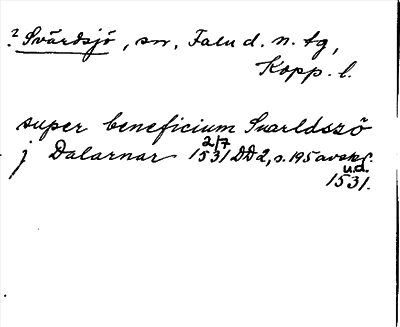 ? Svärdsjö, sn, Falu d. n. tg,
Kopp. l.
super beneficium Svarldszö
j Dalarnar 2/7 1531 DD2, s. 195 avskr.
u.d.
1531.